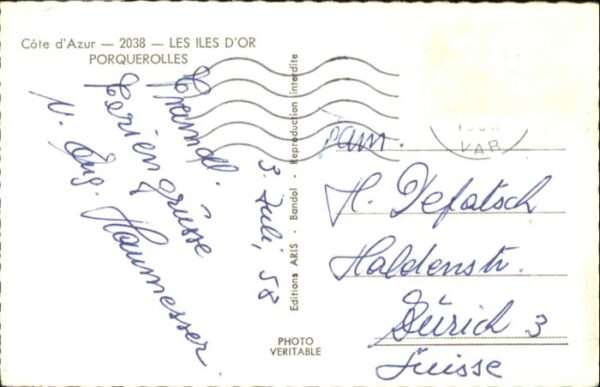 Côte d'Azur — 2038 — LES ILES D'OR
PORQUEROLLES
Freundl.
Feriengrüsse
v. Aug. Haumesser
3. Juli, 58
Editions ARIS - Bandol - Reproduction interdite
PHOTO
VERITABLE
VAR
Fam.
H. Defatsch
Haldenstr.
Zürich 3
Suisse